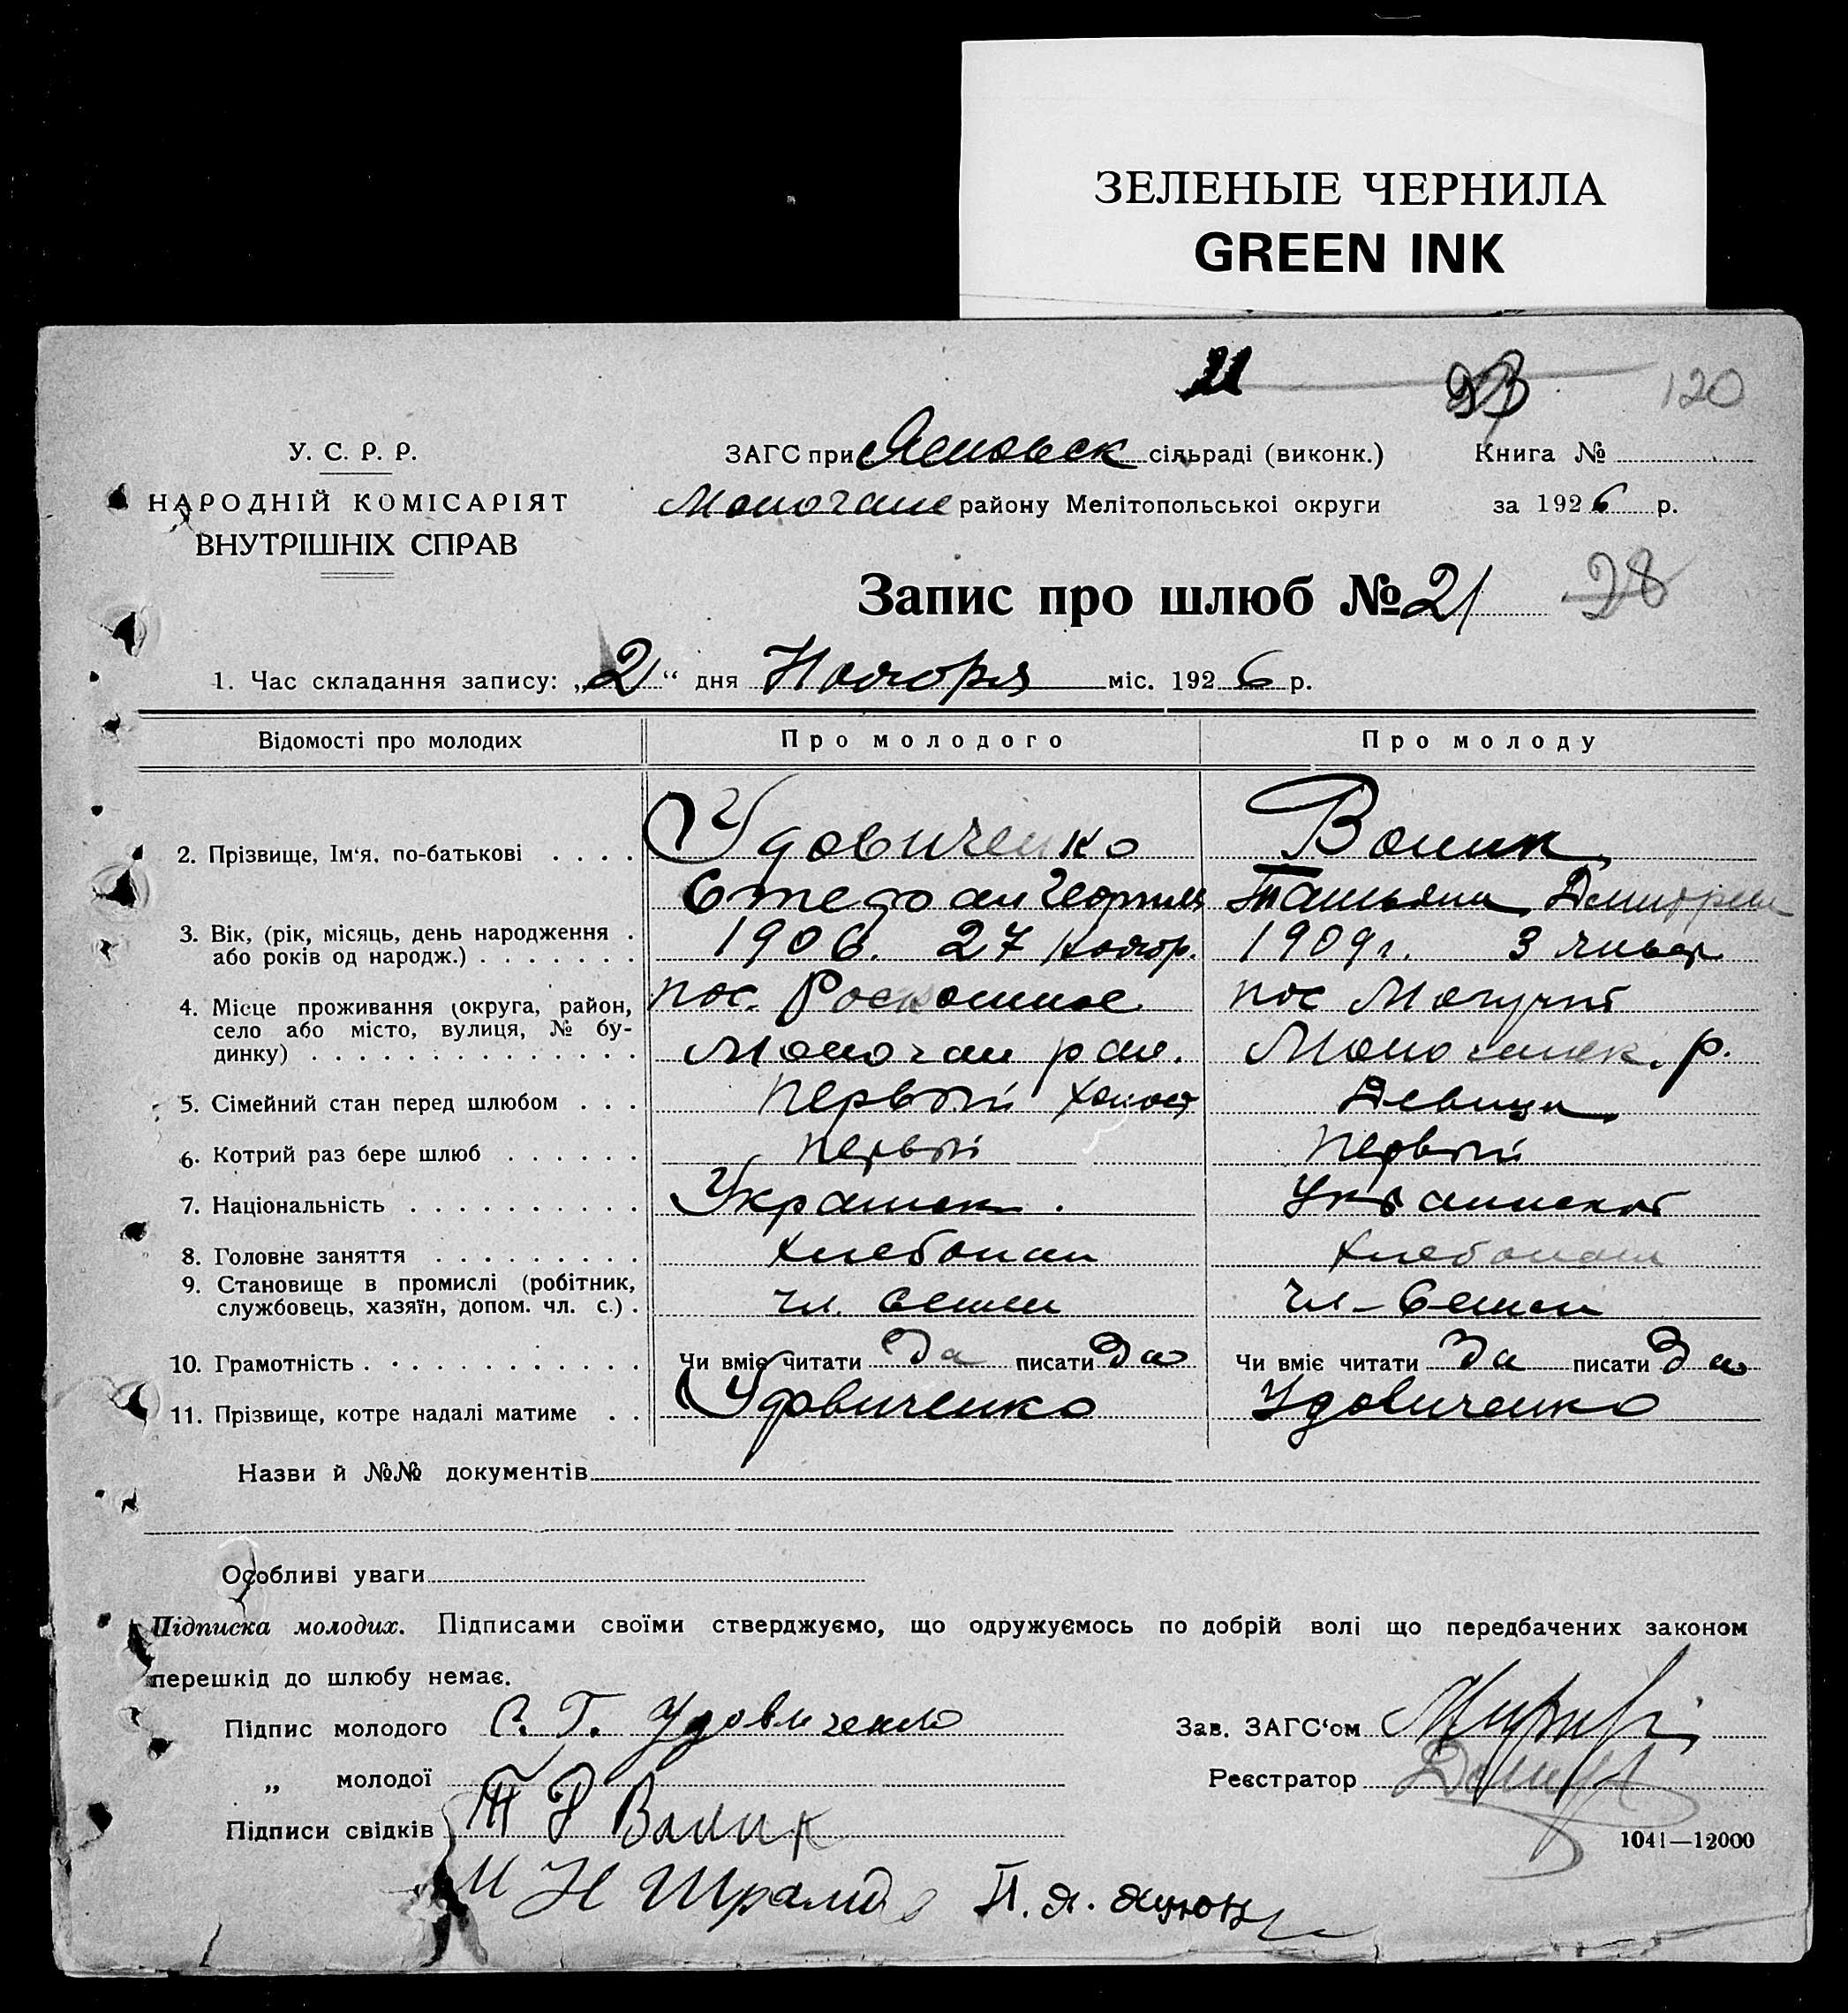 ЗЕЛЕНЫЕ ЧЕРНИЛА
GREEN INK
21 120
У. С. Р. Р.
НАРОДНІЙ КОМІСАРІЯТ
ВНУТРІШНІХ СПРАВ
ЗАГС при сільраді (виконк.) Книга №
району Мелітопольської округи за 1926 р.
Запис про шлюб № 21 28
1. Час складання запису: „2“ дня Ноября міс. 1926 р.
Відомості про молодих Про молодого Про молоду
2. Прізвище, Ім'я, по-батькові . . . . Удовиченко Волик
Татьяна
3. Вік, (рік, місяць, день народження . 1906. 27 Ноябр. 1909 г. 3 Январ
або років од народж.) . . . . . . .
4. Місце проживання (округа, район, пос. Роскошное пос Могучий
село або місто, вулиця, № бу-
динку) . . . . . . . . . . . . . . р.
5. Сімейний стан перед шлюбом . . . первый холост Девица
6. Котрий раз бере шлюб . . . . . . первый первый
7. Національність . . . . . . . . . .
8. Головне заняття . . . . . . . . .
9. Становище в промислі (робітник, чл. Семьи чл - Семьи
службовець, хазяїн, допом. чл. с.) .
10. Грамотність . . . . . . . . . . . . Чи вміє читати Да писати Да Чи вміє читати Да писати Да
11. Прізвище, котре надалі матиме . . Удовиченко Удовиченко
Назви й №№ документів
Особливі уваги
Підписка молодих. Підписами своїми стверджуємо, що одружуємось по добрій волі що передбачених законом
перешкід до шлюбу немає.
Підпис молодого С. Г. Удовиченко Зав. ЗАГС'ом
„ молодої Реєстратор
Підписи свідків Волик
1041—12000